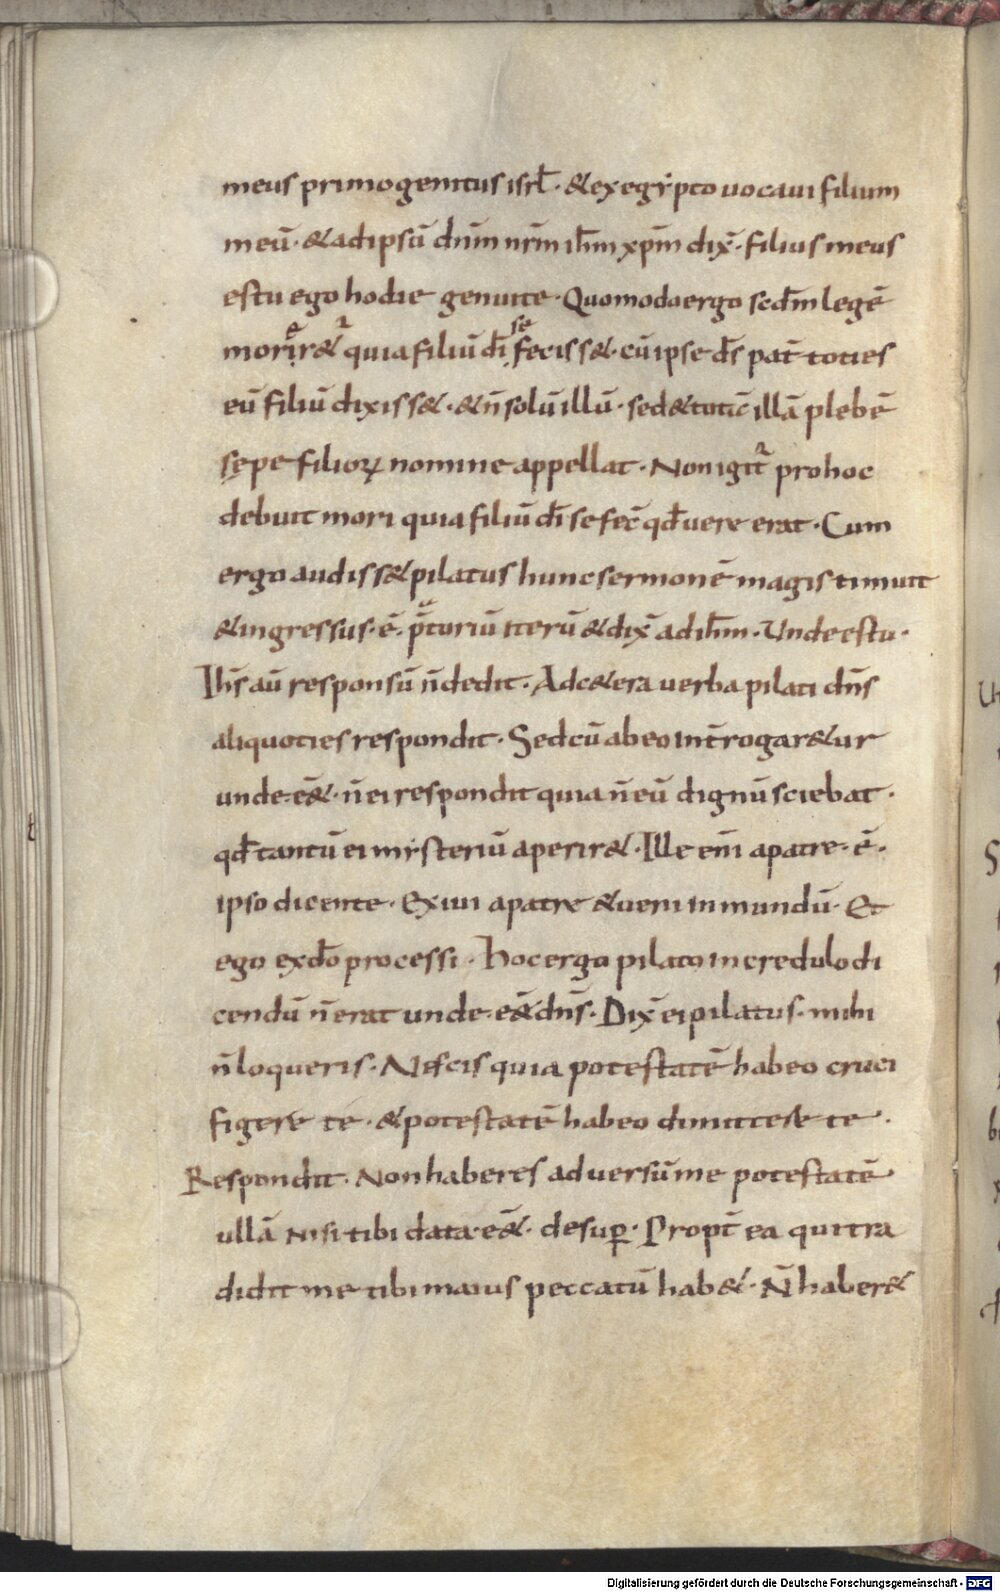 meus primogenitus isrl̄· &exegẏpto uocaui filium
meū· &adipsū dn̄m nr̄m ih̄m xp̄m dix̄· filius meus
estu ego hodie genuite· Quomodo ergo scd̄m legē
morirͤ&ʼ quia filiū dī seͤfeciss&· cū ipse ds̄ pat̄ toties
eū filiū dixiss&· &n̄ solū illū· sed &totā illā plebē
sępe filioꝝ nomine appellat· Non igit̉ pro hoc
debuit mori quia filiū dī se fec̄ qd̄ uere erat· Cum
ergo audiss& pilatus hunc sermonē magis timuit
&ingressus·ē· p̄toriū iterū &dix̄ ad ih̄m· Unde es tu·
Ih̄s aū responsū n̄ dedit· Ad c&era uerba pilati dn̄s
aliquoties respondit· Sed cū ab eo int̄rogar&ur
unde·eē&· n̄ ei respondit quia n̄ eū dignū sciebat·
qd̄ tantū ei mẏsteriū aperir&· Ille eni̅ apatre·ē·
ipso dicente· Exiui apatre &ueni in mundū· Et
ego ex do̅ processi· Hoc ergo pilato incredulo di
cendū n̄ erat unde·eē& dn̄s· Dix̄ ei pilatus· mihi
n̄ loqueris· Nescis quia potestatē habeo cruci
figere te· &potestatē habeo dimittere te·
Respondit· Non haberes aduersū me potestatē
ullā nisi tibi data·eē&· desuꝑ· Propt̄ ea qui tra
didit me tibi maius peccatū hab&· N̄ haber&
Digitalisierung gefördert durch die Deutsche Forschungsgemeinschaft - DFG